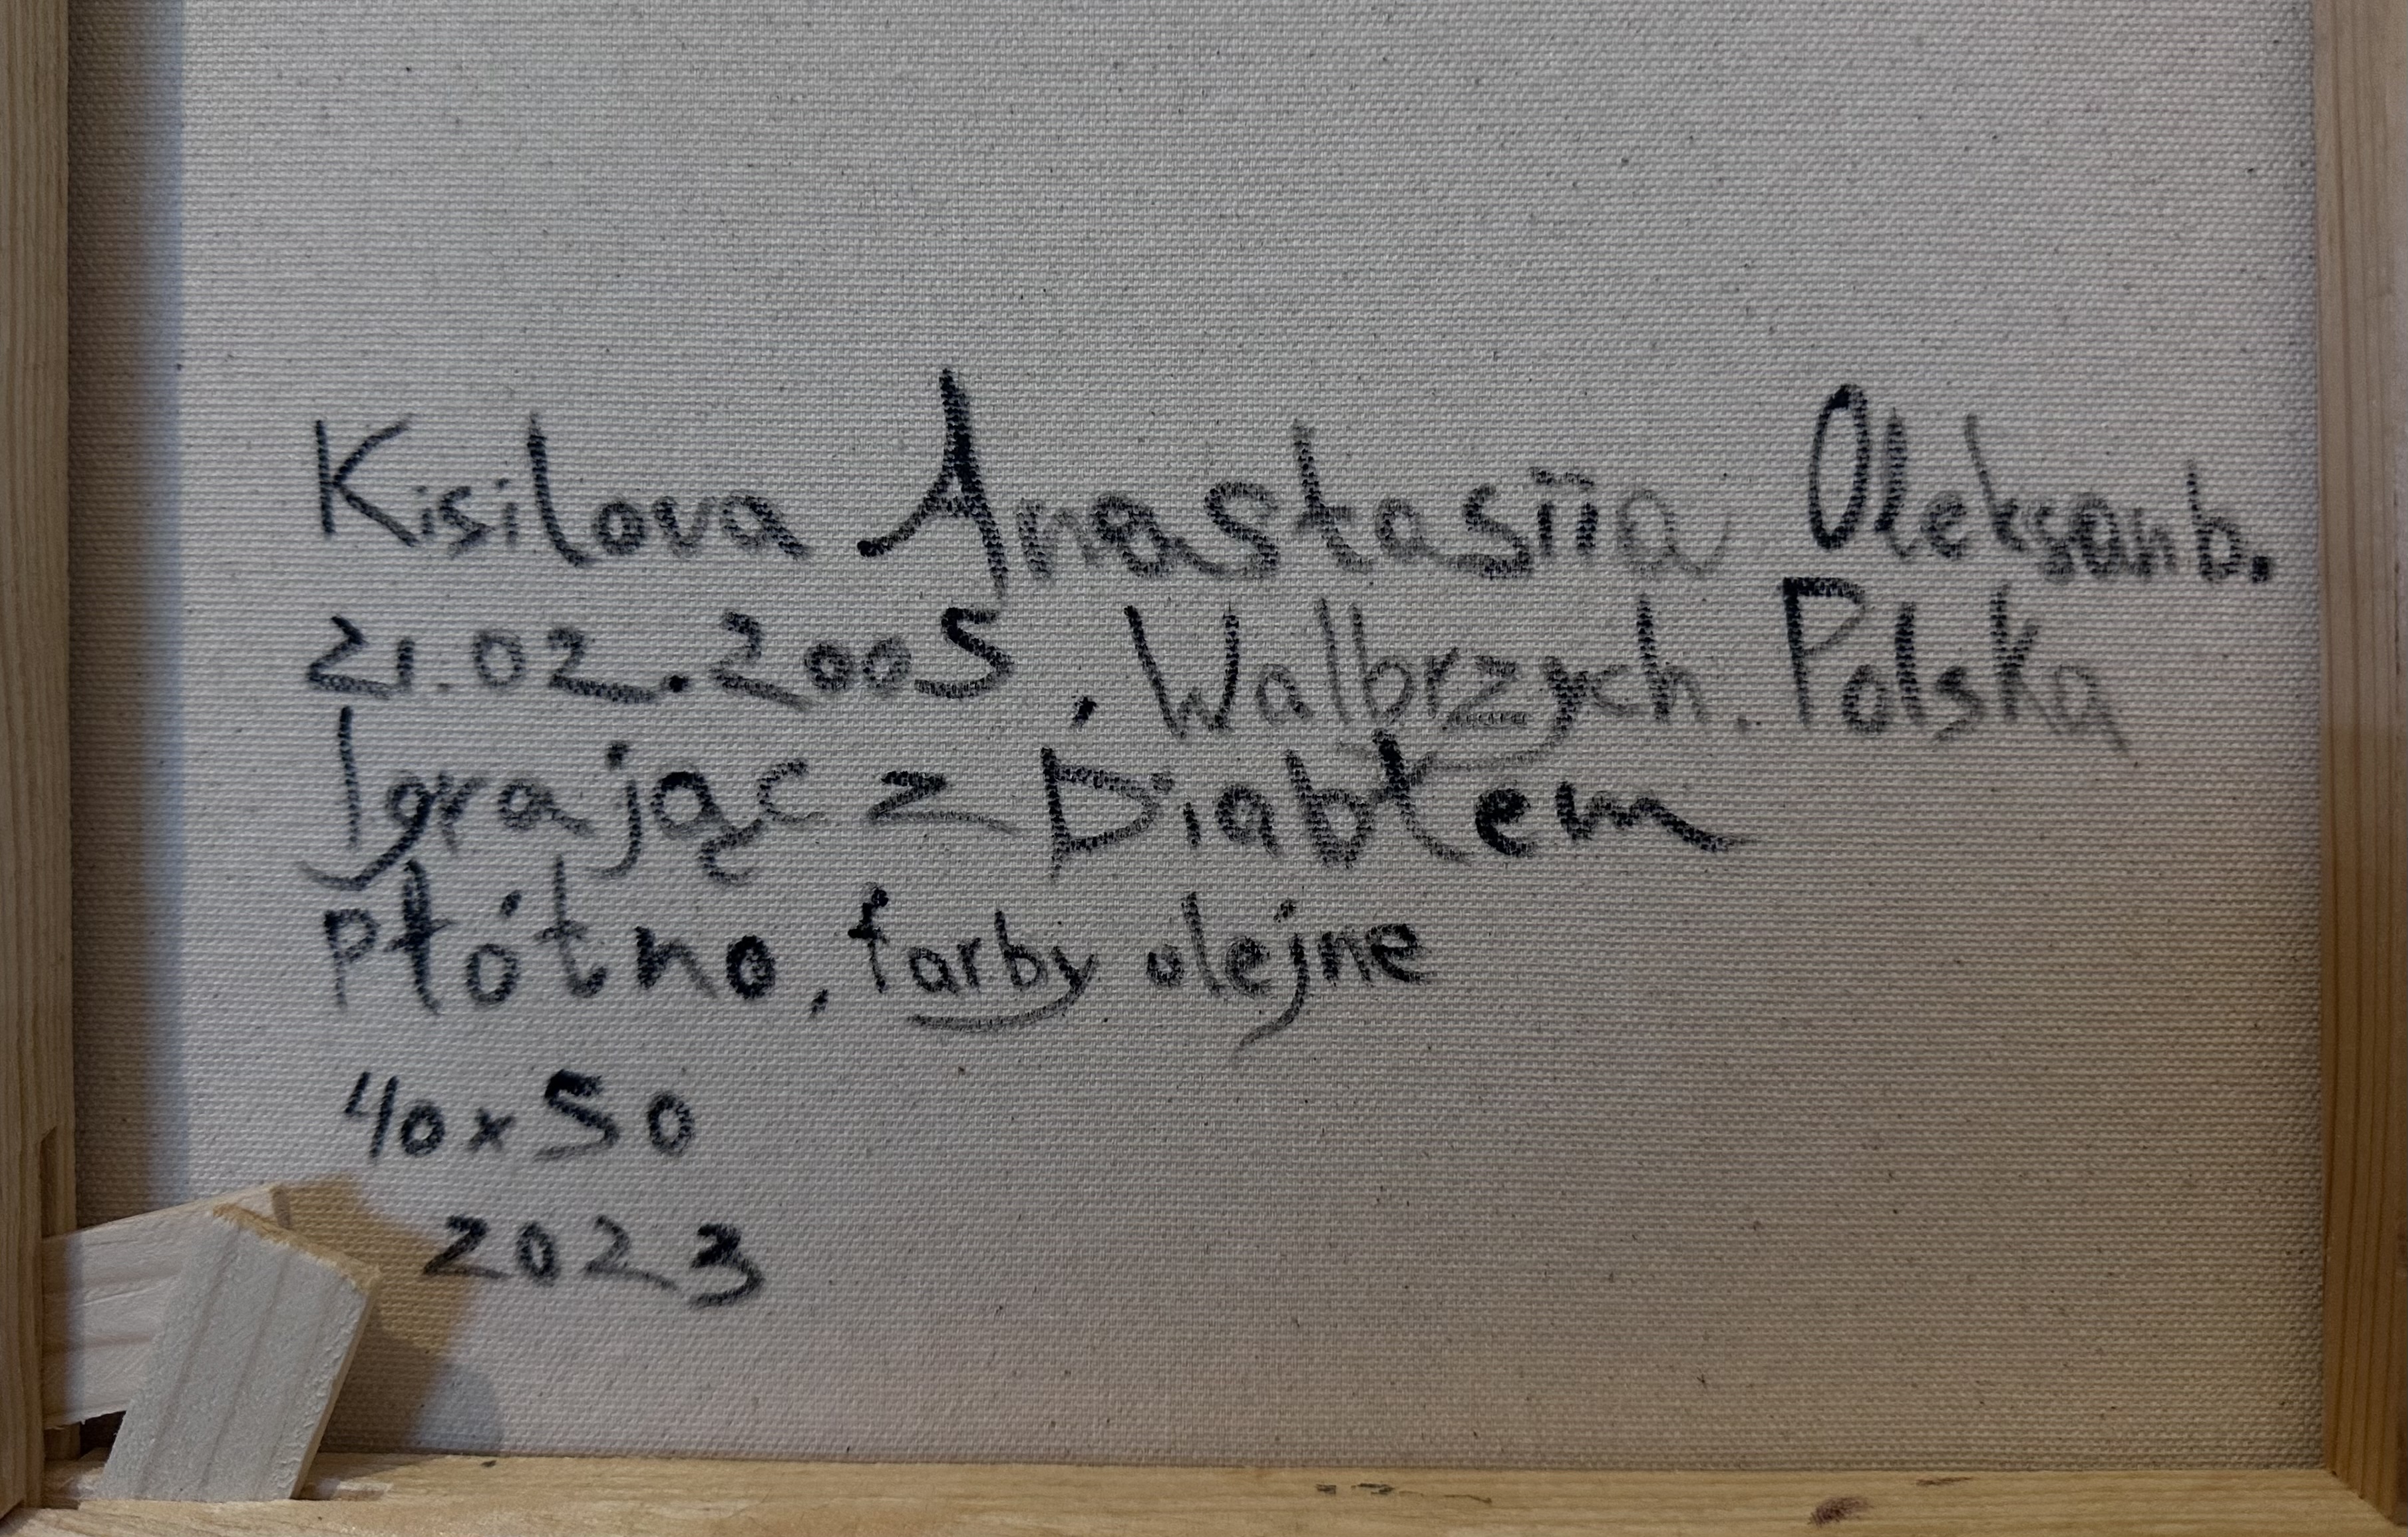 Kisilova Anastasiia Oleksanb.
21.02.2005, Walbrzych. Polska
Igrając z Diabłem
Płótno, farby olejne
40x50
2023